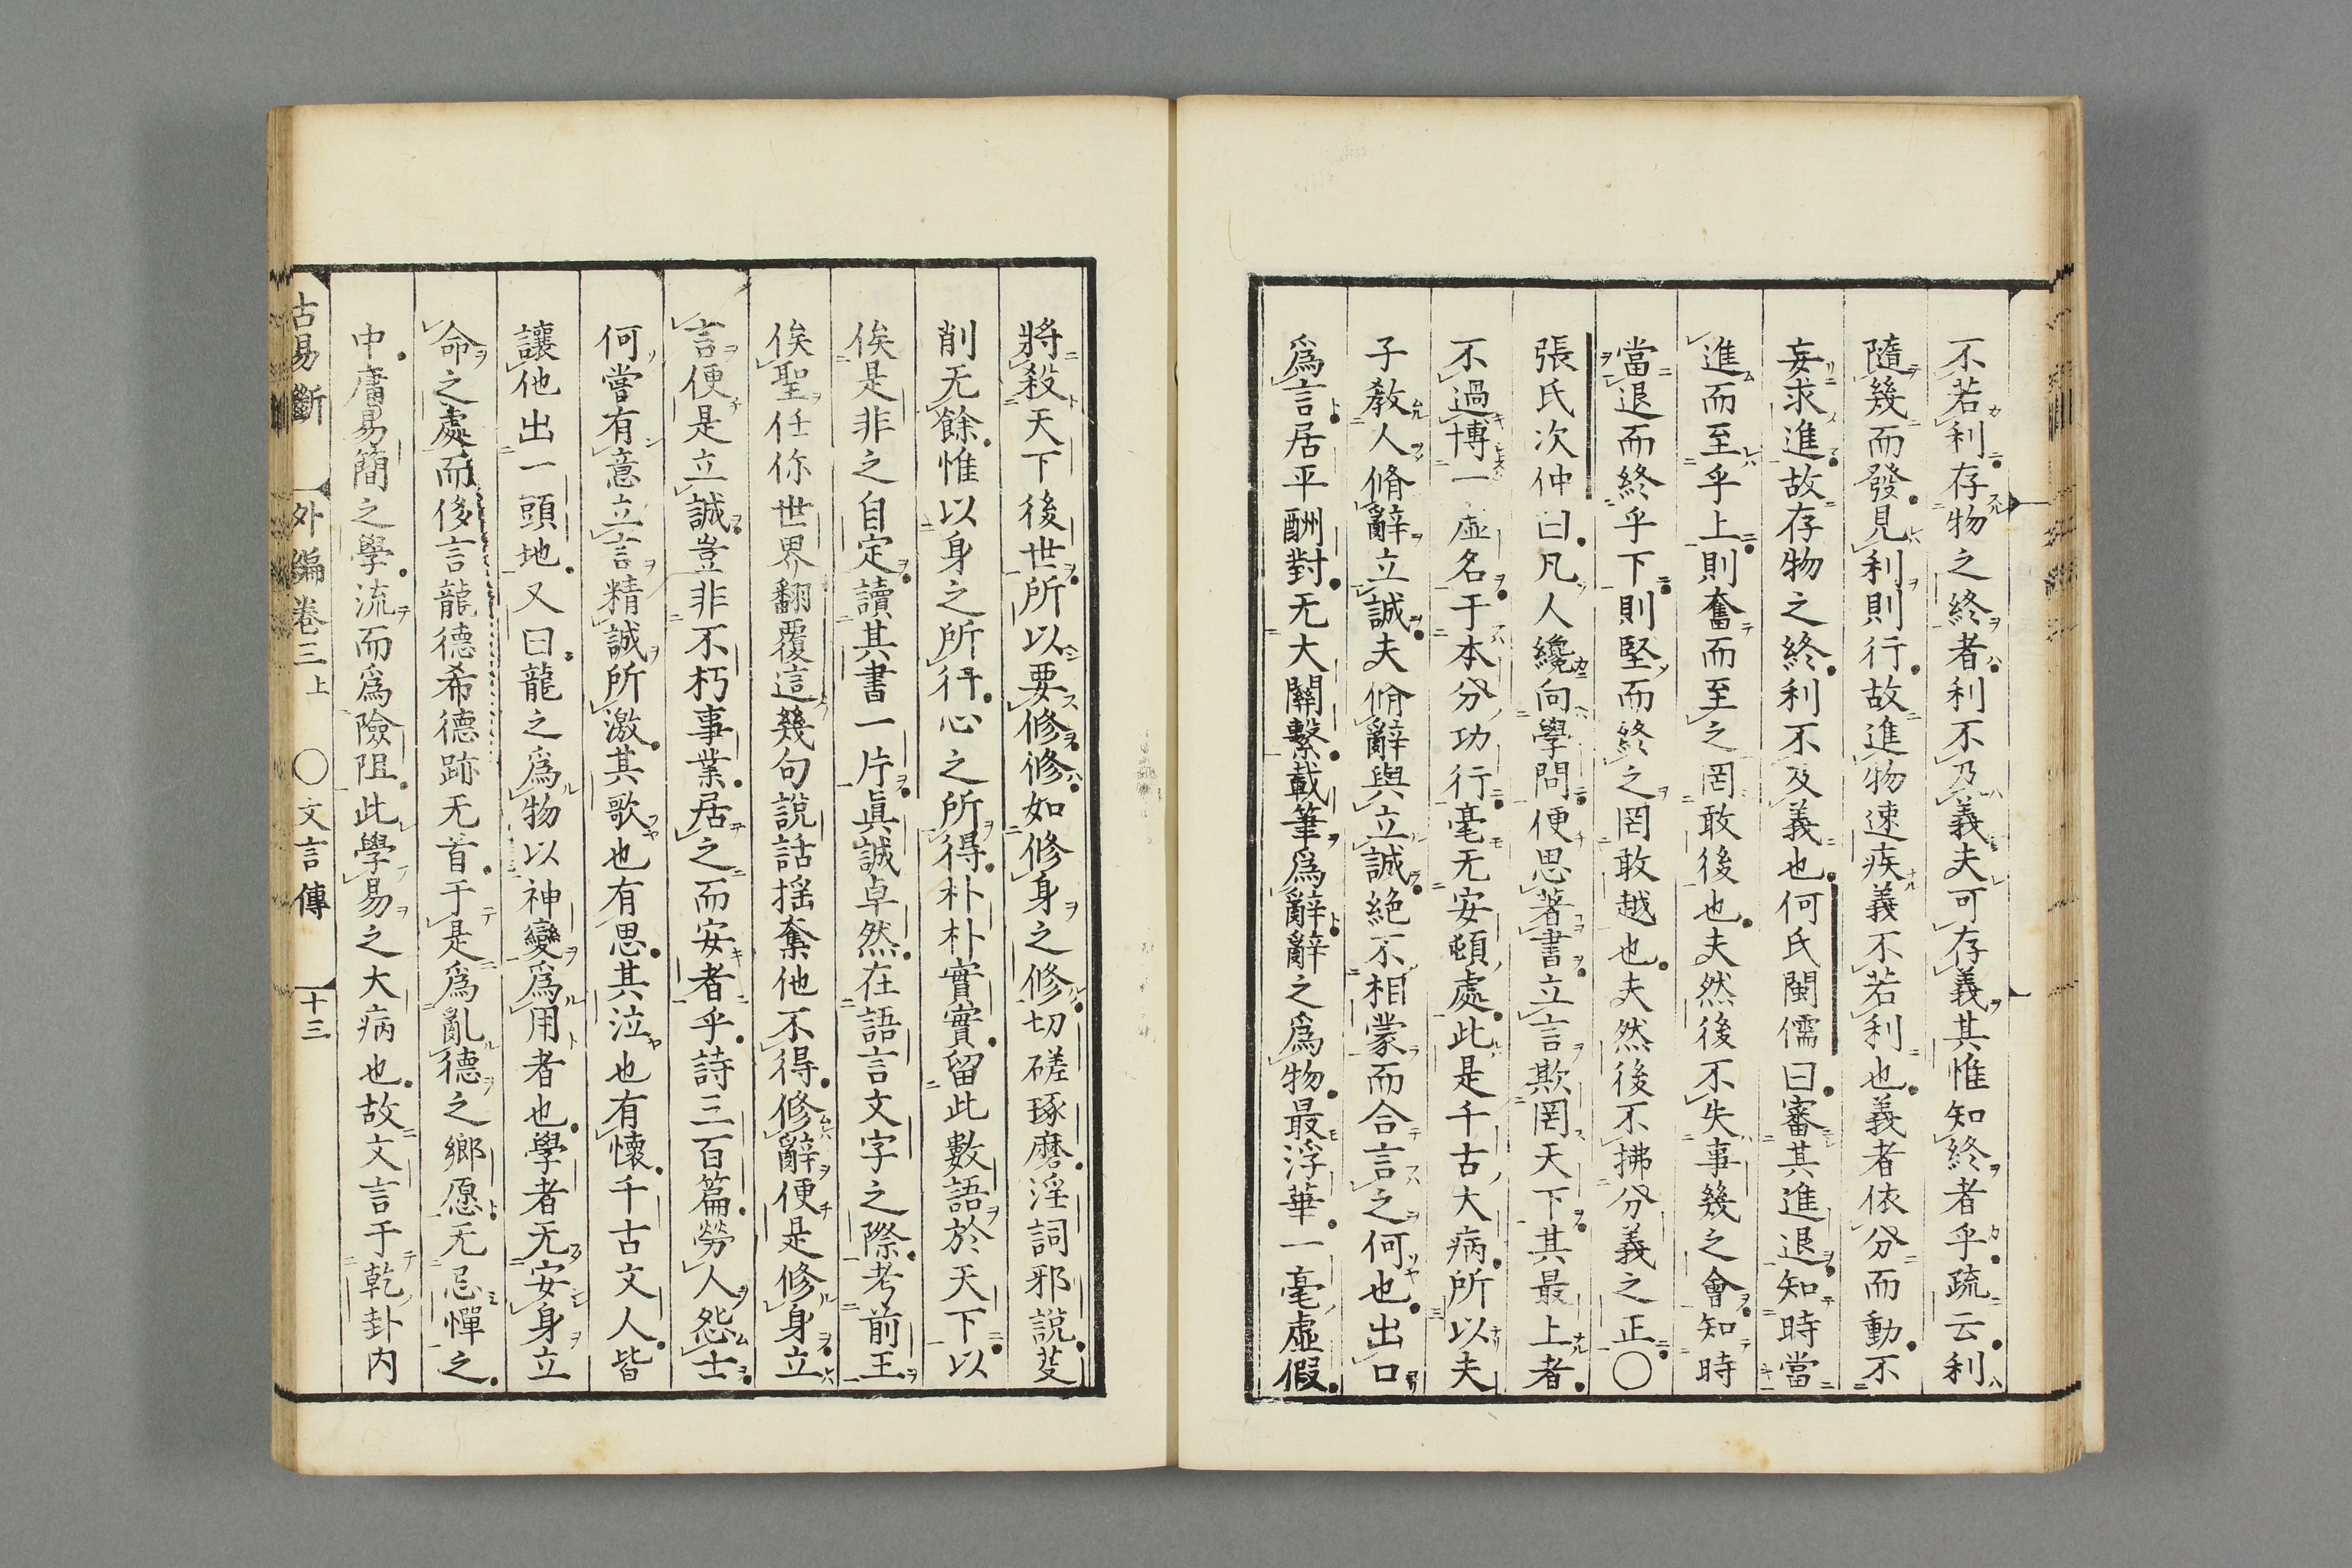 不若利存物之終者利不及義夫可存義其惟知終者乎疏云利
隨幾而發見利則行故進物速疾義不若利也義者依分而動不
妄求進故存物之終利不及義也何氏閩儒曰審其進退知時當
進而至乎上則奮而至之罔敢後也夫然後不失事幾之會知時
當退而終乎下則堅而終之罔敢越也夫然後不拂分義之正〇
張氏次仲曰凡人纔向學問便思著書立言欺罔天下其最上者
不過博一虛名于本分功行毫无安頓處此是千古大病所以夫
子敎人脩辭立誠夫脩辭與立誠絶不相蒙而合言之何也出口
爲言居平酬對无大關繫載筆爲辭辭之爲物最浮華一毫虛假
將殺天下後世所以要修修如修身之修切磋琢磨淫詞邪說芟
削无餘惟以身之所行心之所得朴朴實實留此數語於天下以
俟是非之自定讀其書一片眞誠卓然在語言文字之際考前王
俟聖任你世界翻覆這幾句說話搖奪他不得修辭便是修身立
言便是立誠豈非不朽事業居之而安者乎詩三百篇勞人怨士
何嘗有意立言精誠所激其歌也有思其泣也有懷千古文人皆
讓他出一頭地又曰龍之爲物以神變爲用者也學者无安身立
命之處而侈言龍德希德跡无首于是爲亂德之鄉愿无忌憚之
中庸易簡之學流而爲險阻此學易之大病也故文言于乾卦内
古易斷 外編卷三上 〇文言傳 十三